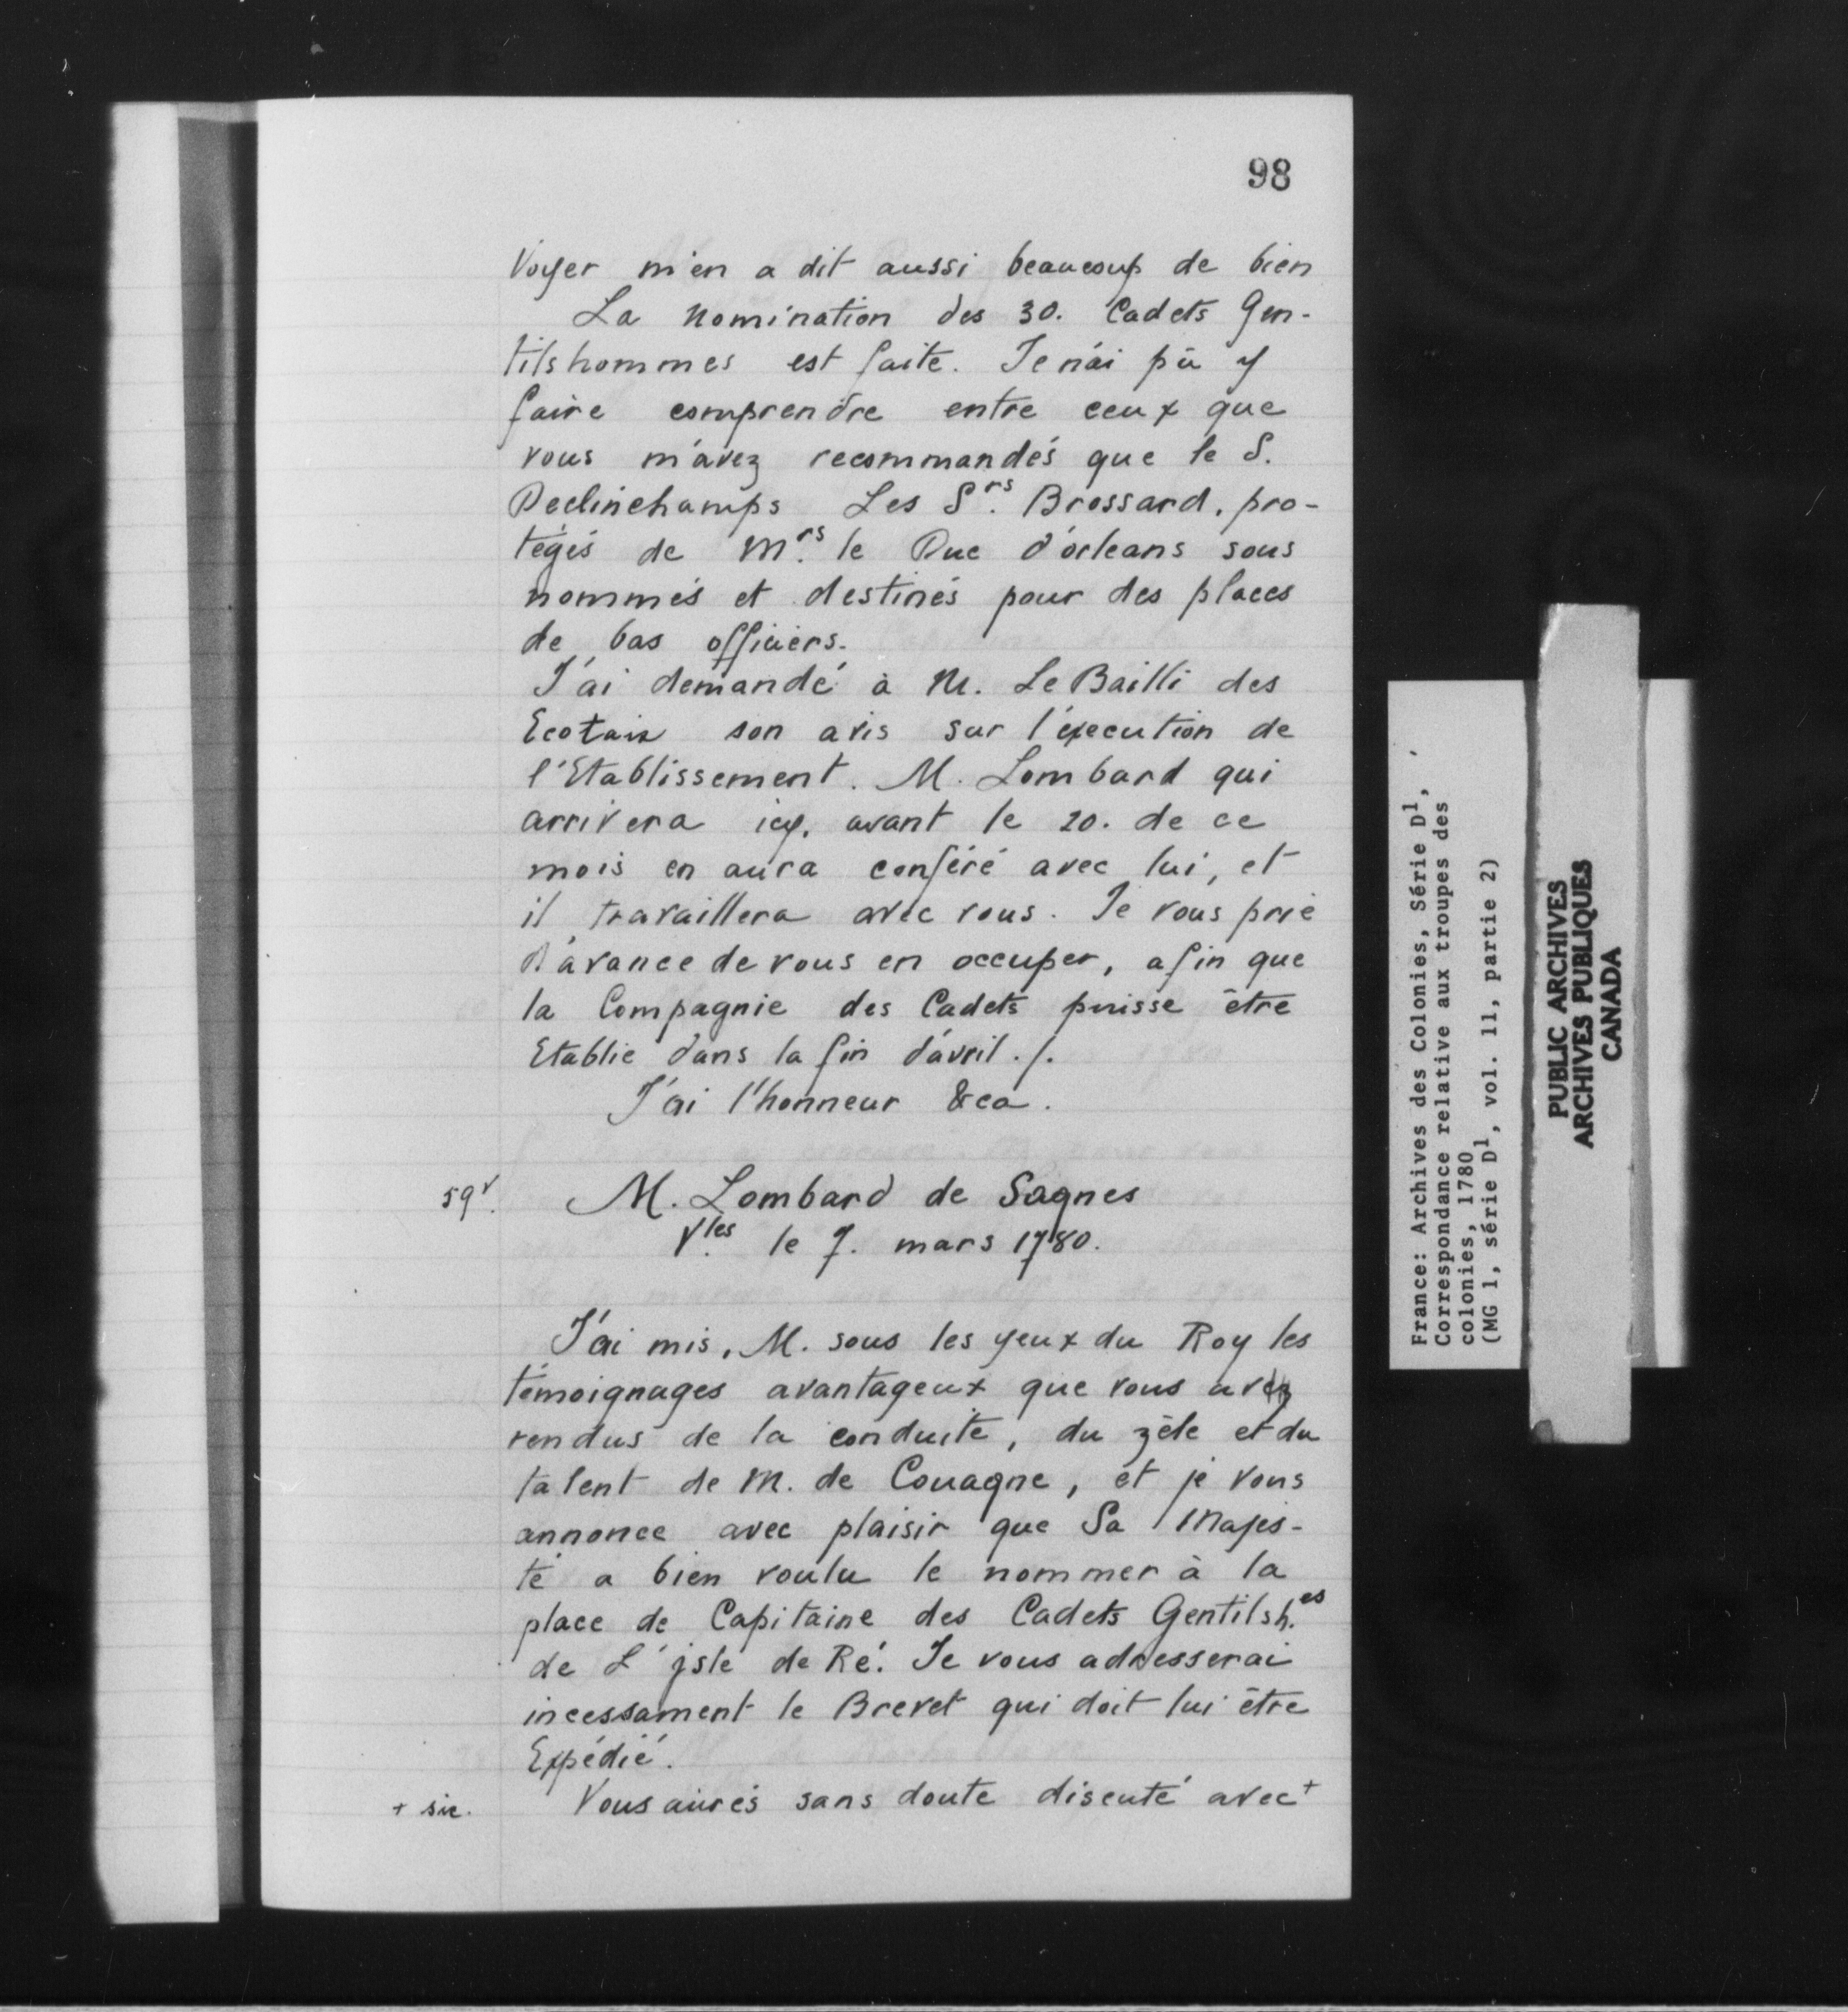 98
Voyer m'en a dit aussi beaucoup de bien
La nomination des 30. Cadets Gen-
tilshommes est faite. Je n'ai pû y
faire comprendre entre ceux que
vous m'avez recommandés que le S.
Declinchamps Les S.rs Brossard, pro-
tégés de M.rs le Duc d'orleans sous
nommés et destinés pour des places
de bas officiers.
J'ai demandé à M. Le Bailli des
Ecotais son avis sur l'éxecution de
l'Etablissement. M. Lombard qui
arrivera icy, avant le 20. de ce
mois en aura conféré avec lui, et
il travaillera avec vous. Je vous prie
d'avance de vous en occuper, afin que
la Compagnie des Cadets puisse être
Etablie dans la fin d'avril ./.
J'ai l'honneur &ca.
59v. M. Lombard de Sagnes
V.les le 7. mars 1780.
J'ai mis, M. sous les yeux du Roy les
témoignages avantageux que vous avez
rendus de la conduite, du zèle et du
talent de M. de Couagne, et je vous
annonce avec plaisir que Sa Majes-
té a bien voulu le nommer à la
place de Capitaine des Cadets Gentilsh.es
de L'jsle de Ré. Je vous adresserai
incessament le Brevet qui doit lui être
Expédié.
+ sic. Vous aurés sans doute discuté avec+
France: Archives des Colonies, Série D1,
Correspondance relative aux troupes des
colonies, 1780
(MG 1, série D1, vol. 11, partie 2)
PUBLIC ARCHIVES
ARCHIVES PUBLIQUES
CANADA